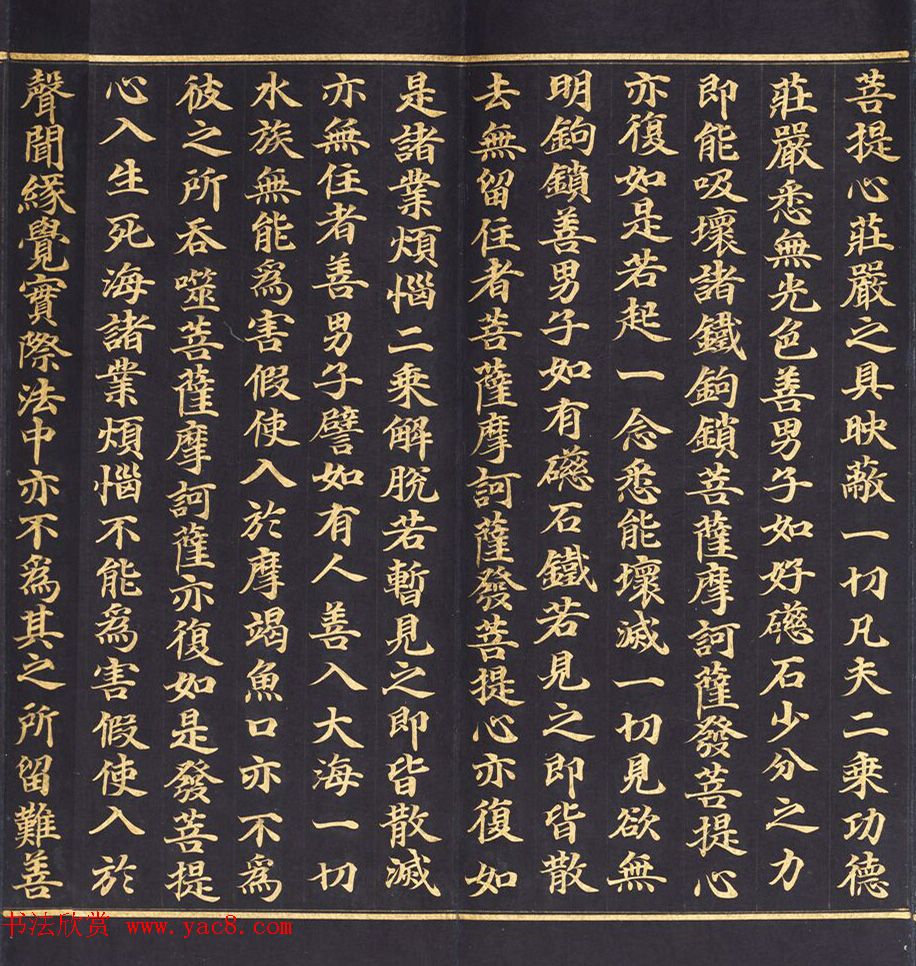 菩提心莊嚴之具映蔽一切凡夫二乗功德
莊嚴悉無光色善男子如好礠石少分之力
即能吸壞諸鐵鉤鎖菩薩摩訶薩發菩提心
亦復如是若起一念悉能壞滅一切見欲無
明鉤鎖善男子如有礠石鐵若見之即皆散
去無留住者菩薩摩訶薩發菩提心亦復如
是諸業煩惱二乗解脫若暫見之即皆散滅
亦無住者善男子譬如有人善入大海一切
水族無能爲害假使入於摩竭魚口亦不爲
彼之所吞噬菩薩摩訶薩亦復如是發菩提
心入生死海諸業煩惱不能爲害假使入於
聲聞緣覺實際法中亦不爲其之所留難善
书法欣赏 www.yac8.com